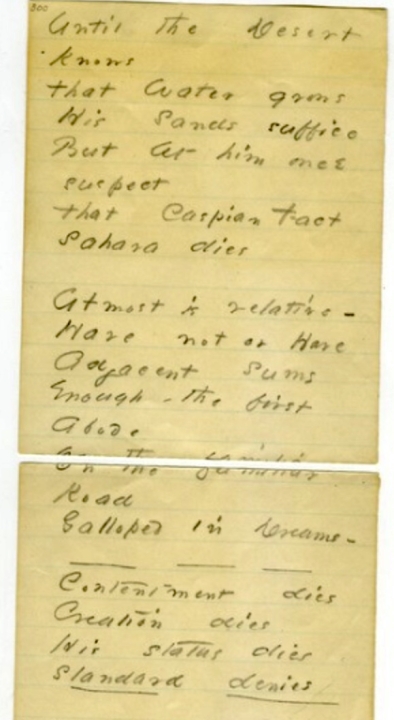 Until the Desert
knows
that Water grows
His Sands suffice
But let him once
suspect
that Caspian Fact
Sahara dies
Utmost is relative -
Have not or Have
Adjacent Sums
Enough - the first
Abode
On the familiar
Road
Galloped in Dreams -
Contentment dies
Creation dies
His status dies
Standard denies